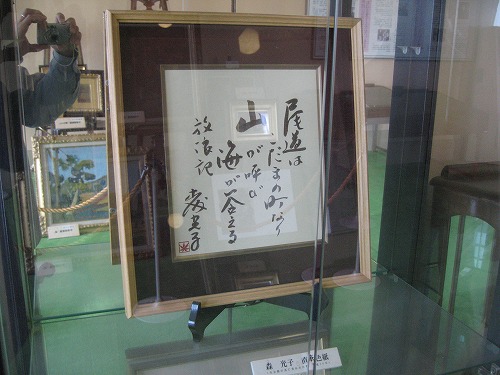 尾道は
こだまの町なり
山が呼び
海が答える
放浪記
森光子
森 光子 直筆色紙